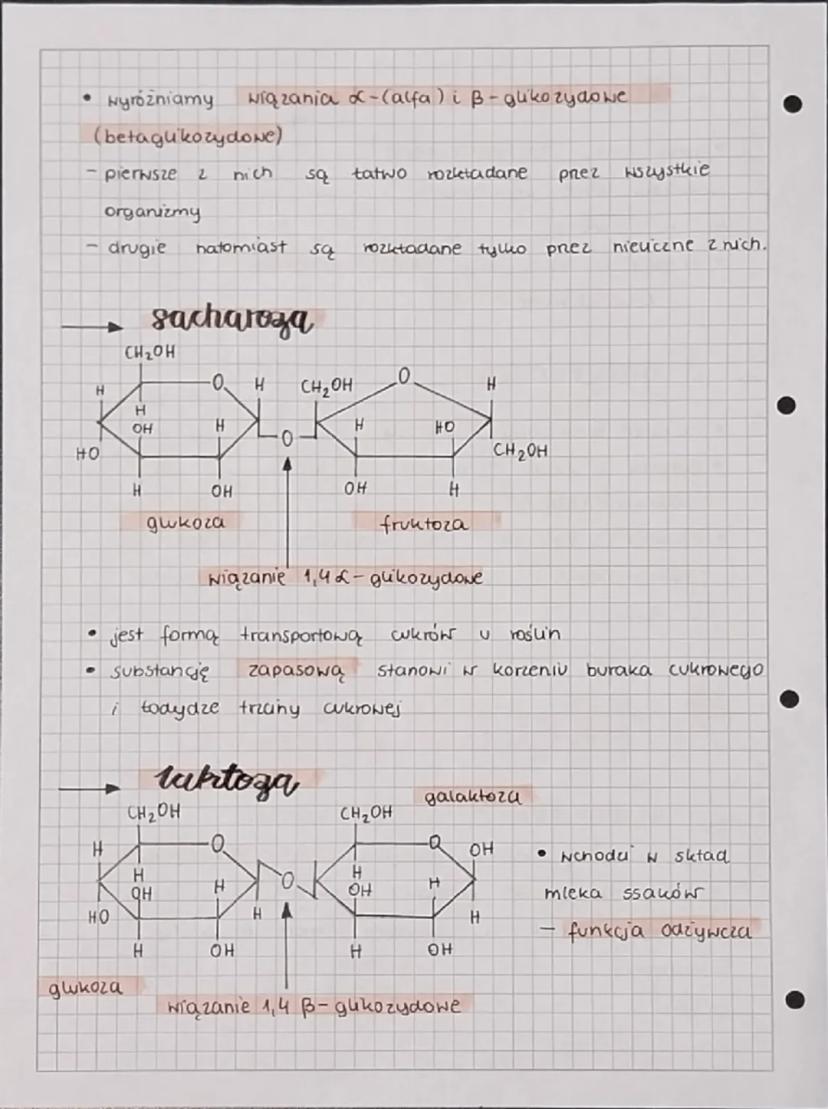 • wyróżniamy wiązania α-(alfa) i β-glikozydowe
(betaglikozydowe)
- pierwsze z nich są łatwo rozkładane przez wszystkie
organizmy
- drugie natomiast są rozkładane tylko przez nieliczne z nich.
→ sacharoza
CH₂OH
H O H CH₂OH O H
H
OH H H HO
HO O CH₂OH
H OH OH H
glukoza fruktoza
wiązanie 1,4 α-glikozydowe
• jest formą transportową cukrów u roślin
• substancję zapasową stanowi w korzeniu buraka cukrowego
i łodydze trzciny cukrowej
→ laktoza
galaktoza
CH₂OH CH₂OH
H O O OH
• wchodzi w skład
H H
OH H O OH H
mleka ssaków
HO H H
- funkcja odżywcza
H OH H OH
glukoza
wiązanie 1,4 β-glikozydowe